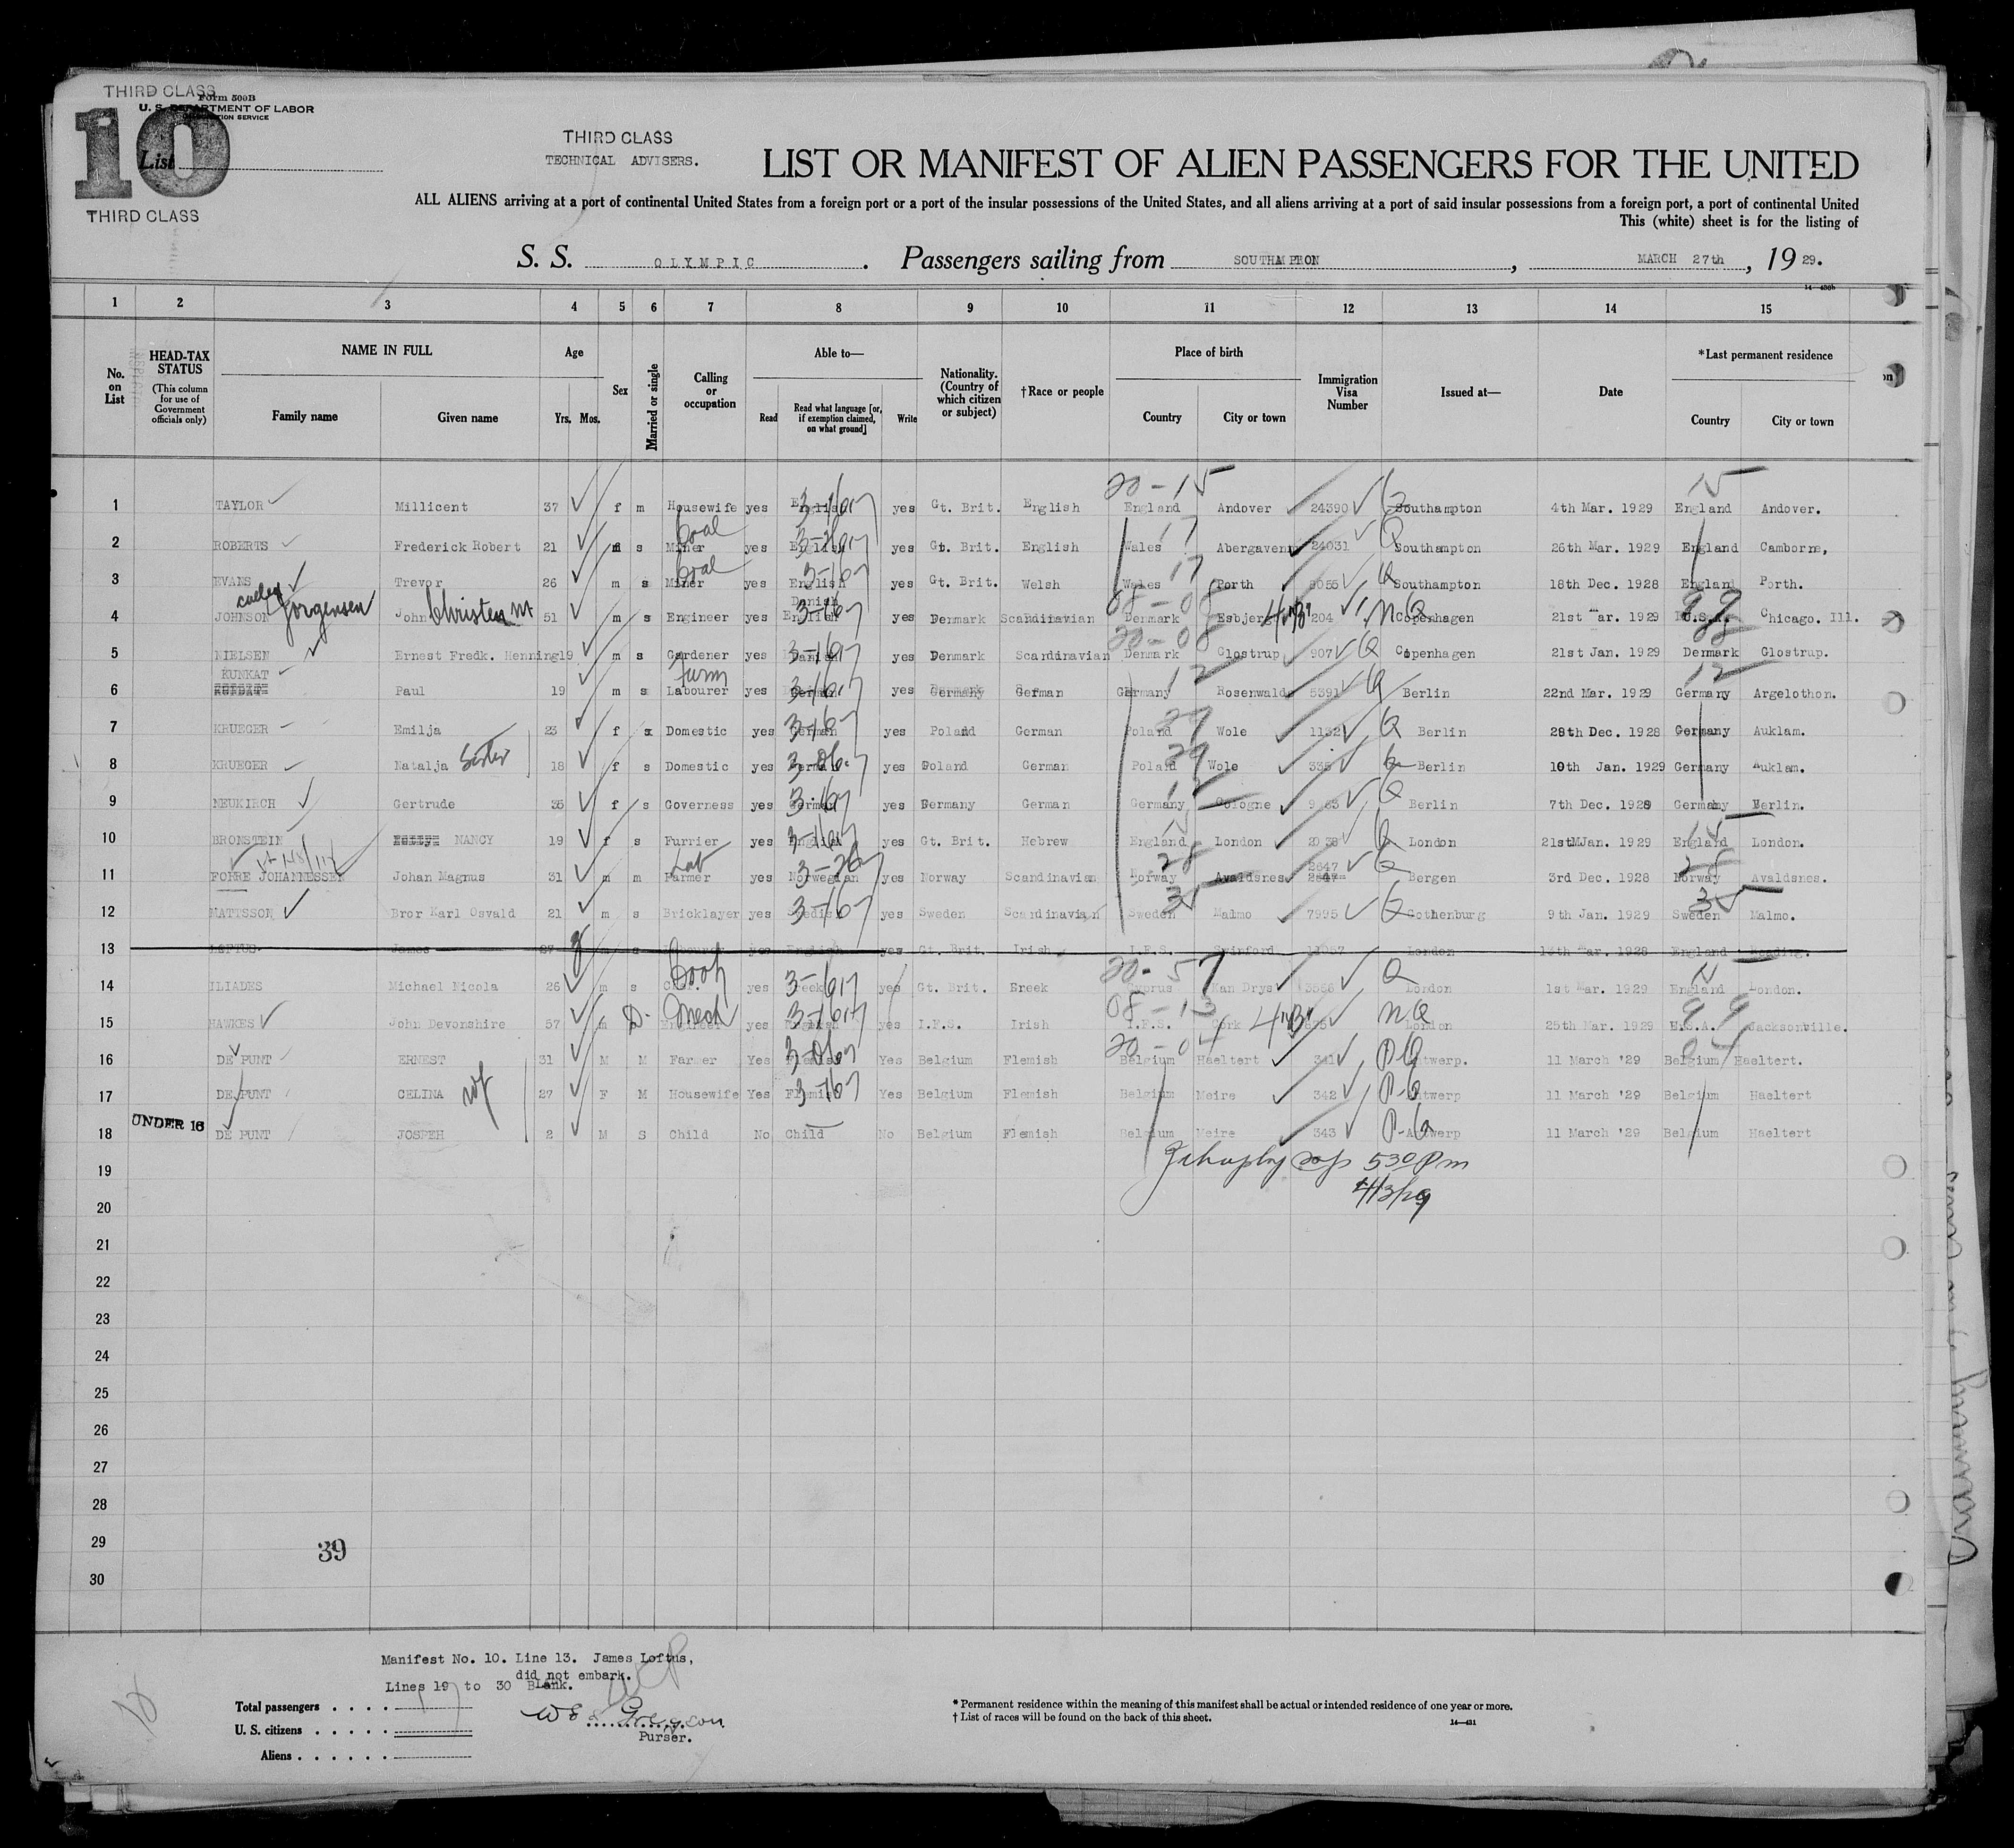 THIRD CLASS
Form 500B
U. S. DEPARTMENT OF LABOR
10
List
THIRD CLASS
THIRD CLASS
TECHNICAL ADVISERS.
LIST OR MANIFEST OF ALIEN PASSENGERS FOR THE UNITED
ALL ALIENS arriving at a port of continental United States from a foreign port or a port of the insular possessions of the United States, and all aliens arriving at a port of said insular possessions from a foreign port, a port of continental United
This (white) sheet is for the listing of
S. S. OLYMPIC. Passengers sailing from SOUTHAMPTON, MARCH 27th, 19 29.
1 2 3 4 5 6 7 8 9 10 11 12 13 14 15
No. on List
HEAD-TAX STATUS (This column for use of Government officials only)
NAME IN FULL
Family name Given name
Age
Yrs. Mos.
Sex
Married or single
Calling or occupation
Able to—
Read Read what language [or, if exemption claimed, on what ground] Write
Nationality. (Country of which citizen or subject)
†Race or people
Place of birth
Country City or town
Immigration Visa Number
Issued at—
Date
*Last permanent residence
Country City or town
20-15 15
1 TAYLOR Millicent 37 f m Housewife yes English 3-16-17 yes Gt. Brit. English England Andover 24390 Southampton 4th Mar. 1929 England Andover.
2 ROBERTS Frederick Robert 21 m s Coal Miner yes English yes Gt. Brit. English Wales 17 Abergavenny 24031 Southampton 26th Mar. 1929 England Camborne,
3 EVANS Trevor 26 m s Coal Miner yes English yes Gt. Brit. Welsh Wales 17 Porth 5055 Southampton 18th Dec. 1928 England Porth.
called Jorgensen Christen M
4 JOHNSON John 51 m s Engineer yes Danish English yes Denmark Scandinavian Denmark Esbjerg 204 NQ Copenhagen 21st Mar. 1929 U.S.A. 99 Chicago. Ill.
5 NIELSEN Ernest Fredk. Henning 19 m s Gardener yes Danish yes Denmark Scandinavian Denmark 20-08 Glostrup 907 Q Copenhagen 21st Jan. 1929 Denmark Glostrup.
KUNKAT
6 Paul 19 m s Farm Labourer yes German yes Germany German Germany 12 Rosenwalde 5391 Q Berlin 22nd Mar. 1929 Germany 12 Argelothon.
7 KRUEGER Emilja 23 f s Domestic yes German yes Poland German Poland 29 Wole 1132 Q Berlin 28th Dec. 1928 Germany Auklam.
8 KRUEGER Natalja Sister 18 f s Domestic yes German yes Poland German Poland 29 Wole 335 Berlin 10th Jan. 1929 Germany Auklam.
9 NEUKIRCH Gertrude 35 f s Governess yes German yes Germany German Germany 12 Cologne Q Berlin 7th Dec. 1928 Germany Berlin.
10 BRONSTEIN NANCY 19 f s Furrier yes English yes Gt. Brit. Hebrew England London London 21st Jan. 1929 England 15 London.
11 FOHRE JOHANNESSEN Johan Magnus 31 m m Lab Farmer yes Norwegian yes Norway Scandinavian Norway 28 Avaldsnes 2647 Q Bergen 3rd Dec. 1928 Norway 28 Avaldsnes.
12 MATTSSON Bror Karl Osvald 21 m s Bricklayer yes Swedish yes Sweden Scandinavian Sweden 35 Malmo 7995 Q Gothenburg 9th Jan. 1929 Sweden 35 Malmo.
13 LOFTUS James 27 m s Labourer yes English yes Gt. Brit. Irish I.F.S. Swinford London 13th Mar. 1928 England Reading.
14 ILIADES Michael Nicola 26 m s Cook yes Greek yes Gt. Brit. Greek Cyprus 20-57 Van Drys Q London 1st Mar. 1929 England London.
15 HAWKES John Devonshire 57 m D. Mech Engineer yes English yes I.F.S. Irish I.F.S. 08-13 Cork NQ London 25th Mar. 1929 U.S.A. 99 Jacksonville.
16 DE PUNT ERNEST 31 M M Farmer Yes Flemish Yes Belgium Flemish Belgium 20-04 Haeltert 341 Antwerp. 11 March '29 Belgium 04 Haeltert.
17 DE PUNT CELINA wf 27 F M Housewife Yes Flemish Yes Belgium Flemish Belgium Meire 342 Antwerp 11 March '29 Belgium Haeltert
UNDER 16
18 DE PUNT JOSPEH 2 M S Child No Child No Belgium Flemish Belgium Meire 343 Antwerp 11 March '29 Belgium Haeltert
19 530 Pm
20 4/3/29
21
22
23
24
25
26
27
28
29 39
30
Manifest No. 10. Line 13. James Loftus,
did not embark.
Lines 19 to 30 Blank.
Total passengers
U. S. citizens
Aliens
Gregson
Purser.
* Permanent residence within the meaning of this manifest shall be actual or intended residence of one year or more.
† List of races will be found on the back of this sheet.
14—431